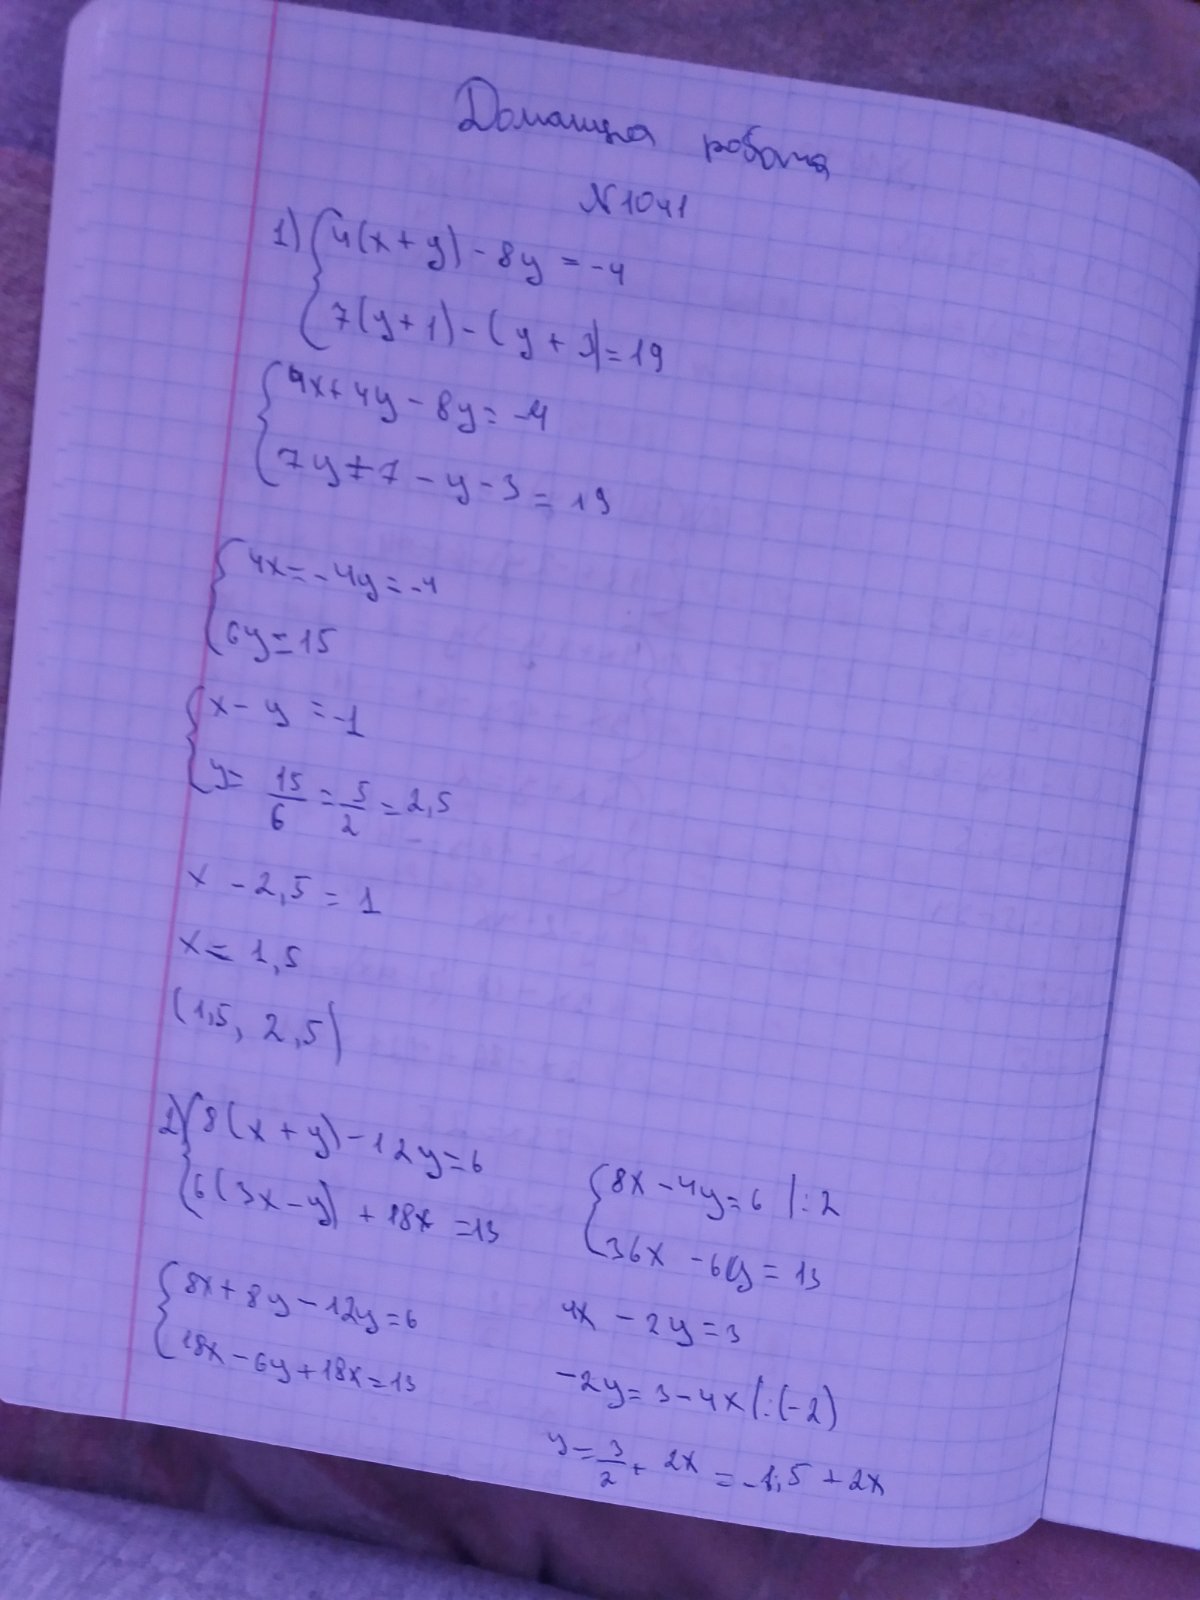 Домашня робота
№1041
1) { 4(x+y) - 8y = -4
7(y+1) - (y+3) = 19
{ 4x+4y - 8y = -4
7y+7 - y - 3 = 19
{ 4x = -4y = -4
6y = 15
{ x - y = -1
y = 15/6 = 5/2 = 2,5
x - 2,5 = 1
x = 1,5
(1,5, 2,5)
2) { 8(x+y) - 12y = 6
6(3x-y) + 18x = 13
{ 8x+8y - 12y = 6
18x - 6y + 18x = 13
{ 8x - 4y = 6 |:2
36x - 6y = 13
4x - 2y = 3
-2y = 3 - 4x |:(-2)
y = 3/2 + 2x = -1,5 + 2x